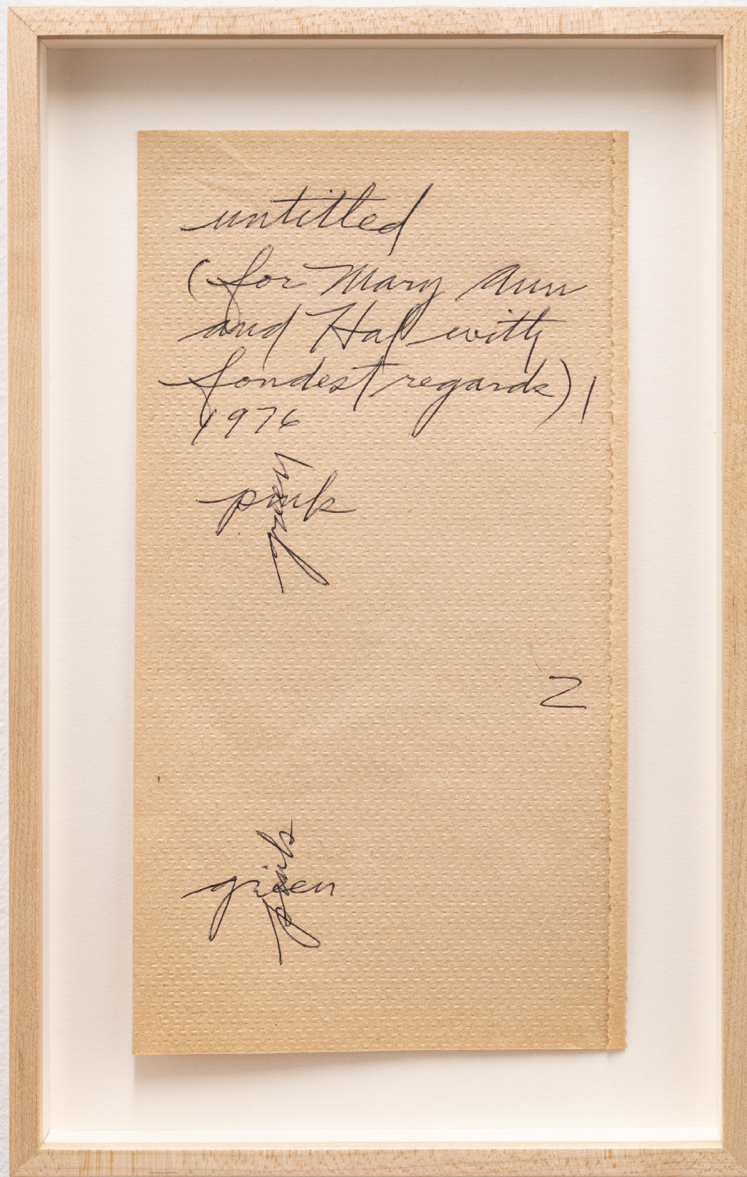 untitled
(for Mary Ann
and Hal with
fondest regards) |
1976
pink
green
2
green
pink